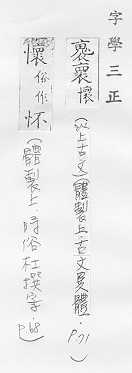 字學三正
褱褢懷
(以上古文)體製上·古文異體·p.71)
懷俗作怀
(體製上 時俗杜撰字·p.68)